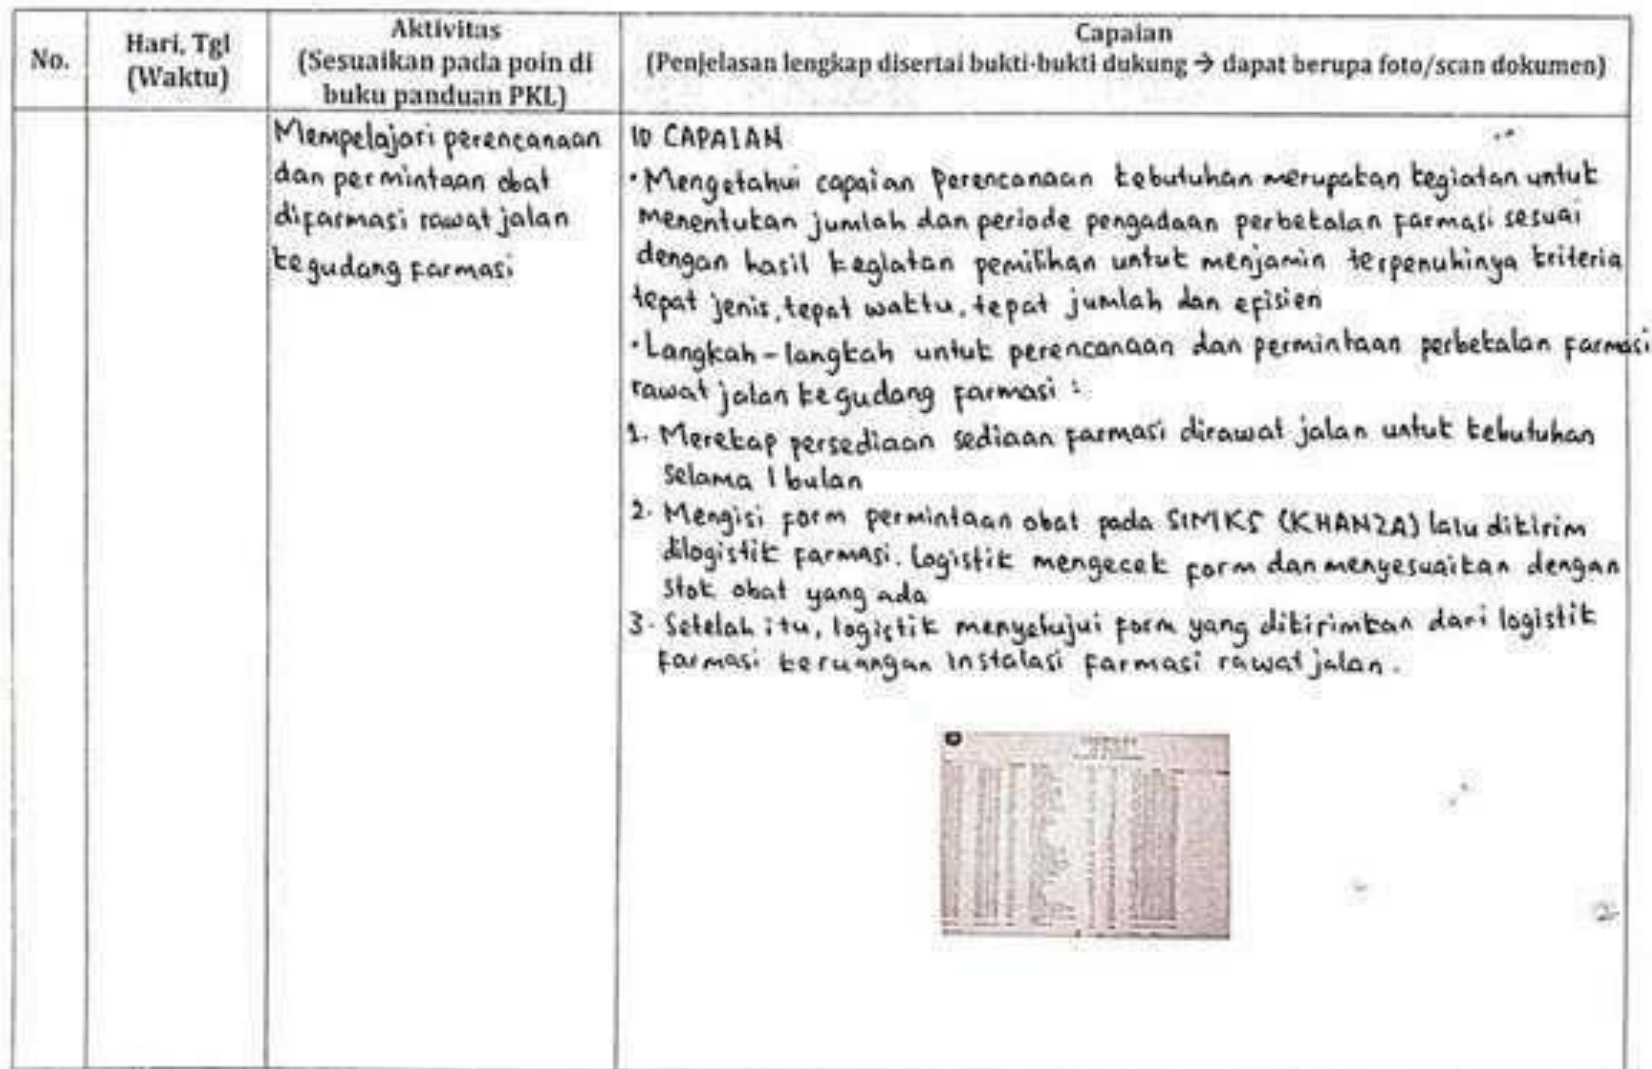 No.
Hari, Tgl
(Waktu)
Aktivitas
(Sesuaikan pada poin di
buku panduan PKL)
Capaian
(Penjelasan lengkap disertai bukti-bukti dukung → dapat berupa foto/scan dokumen)
Mempelajari perencanaan
dan permintaan obat
difarmasi rawat jalan
ke gudang farmasi
10 CAPAIAN
• Mengetahui capaian Perencanaan kebutuhan merupakan kegiatan untuk
menentukan jumlah dan periode pengadaan perbekalan farmasi sesuai
dengan hasil kegiatan pemilihan untuk menjamin terpenuhinya kriteria
tepat jenis, tepat waktu, tepat jumlah dan efisien
• Langkah-langkah untuk perencanaan dan permintaan perbekalan farmasi
rawat jalan ke gudang farmasi :
1. Merekap persediaan sediaan farmasi dirawat jalan untuk kebutuhan
selama 1 bulan
2. Mengisi form permintaan obat pada SIMKS (KHANZA) lalu dikirim
dilogistik farmasi. Logistik mengecek form dan menyesuaikan dengan
stok obat yang ada
3. Setelah itu, logistik menyetujui form yang dikirimkan dari logistik
farmasi keruangan instalasi farmasi rawat jalan.